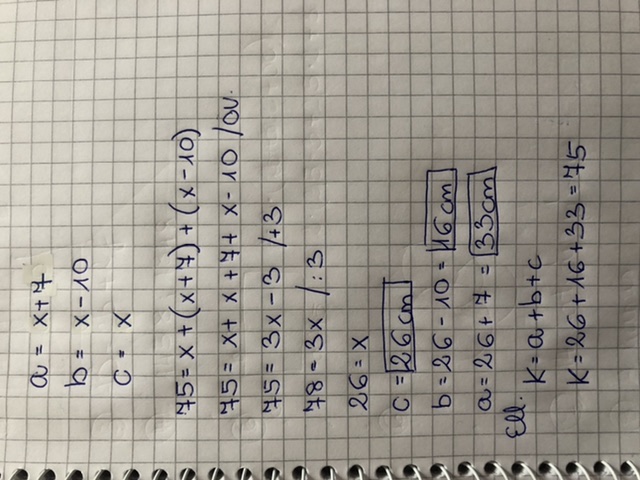 a = x+7
b = x-10
c = x
75 = x + (x+7) + (x-10)
75 = x + x + 7 + x - 10 /ÖV.
75 = 3x - 3 /+3
78 = 3x /:3
26 = x
c = 26cm
b = 26 - 10 = 16cm
a = 26 + 7 = 33cm
Ell.
K = a+b+c
K = 26 + 16 + 33 = 75